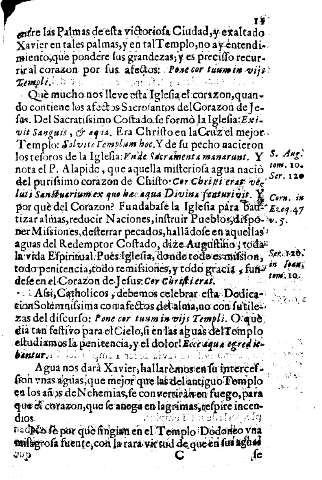 entre las Palmas de esta victoriosa Ciudad, y exaltado
Xavier en tales palmas, y en tal Templo, no ay entendi-
miento, que pondere sus grandezas; y es preciso recur-
rir al corazon por sus afectos: Pone cor tuum in vijs
Templi.
Què mucho nos lleve esta Iglesia el corazon, quan-
do contiene los afectos Sacrosantos del Corazon de Je-
sus. Del Sacratissimo Costado, se formò la Iglesia: Exi-
vit Sanguis, & aqua. Era Christo en la Cruz el mejor
Templo: Solvite Templum hoc. Y de su pecho nacieron
los tesoros de la Iglesia: Vnde Sacramenta manarunt. Y
nota el P. Alapide, que aquella misteriosa agua naciò
del purissimo corazon de Christo: Cor Christi erat ve-
luti Sanctuarium ex quo hæc aqua Divina scaturivit. Y
por què del Corazon? Fundabase la Iglesia para bau-
tizar almas, reducir Naciones, instruir Pueblos, dispo-
ner Missiones, desterrar pecados, hallãdose en aquellas
aguas del Redemptor Costado, dize Augustino; toda
la vida Espiritual. Pues Iglesia, donde todo es mission,
todo penitencia, todo remissiones, y todo gracia, fun-
dese en el Corazon de Jesus: Cor Christi erat.
Assi, Catholicos, debemos celebrar esta Dedica-
cion Solemnissima con afectos del alma, no con sutile-
zas del discurso: Pone cor tuum in vijs Templi. O què
dia tan festivo para el Cielo, si en las aguas del Templo
estudiamos la penitencia, y el dolor! Ecce aqua egredie-
bantur.
Agua nos darà Xavier, hallarèmos en su interces-
sion vnas aguas, que mejor que las del antiguo Templo
en los años de Nehemias, se convertiràn en fuego, para
que el corazon, que se anega en lagrimas, respire incen-
dios.
No se por què fingian en el Templo Dodoneo vna
milagrosa fuente, con la rara virtud de que en sus aguas
C
se
S. Aug.
tom. 10.
Ser. 120
Corn. in
Ezeq. 47
v. 5.
Ser. 120.
in Joan.
tom. 10.